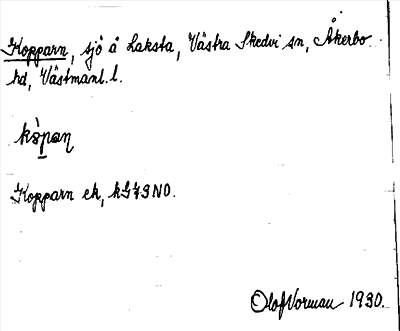 Kopparn, sjö å Laksta, Västra Skedvi sn, Åkerbo
hd, Västmanl. l.
kòpaŋ
Kopparn ek,
Olof Vorman 1930.